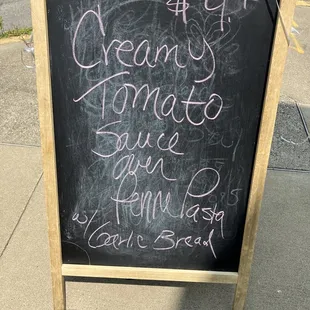 Creamy
Tomato
Sauce
over
Penne Pasta
w/ Garlic Bread